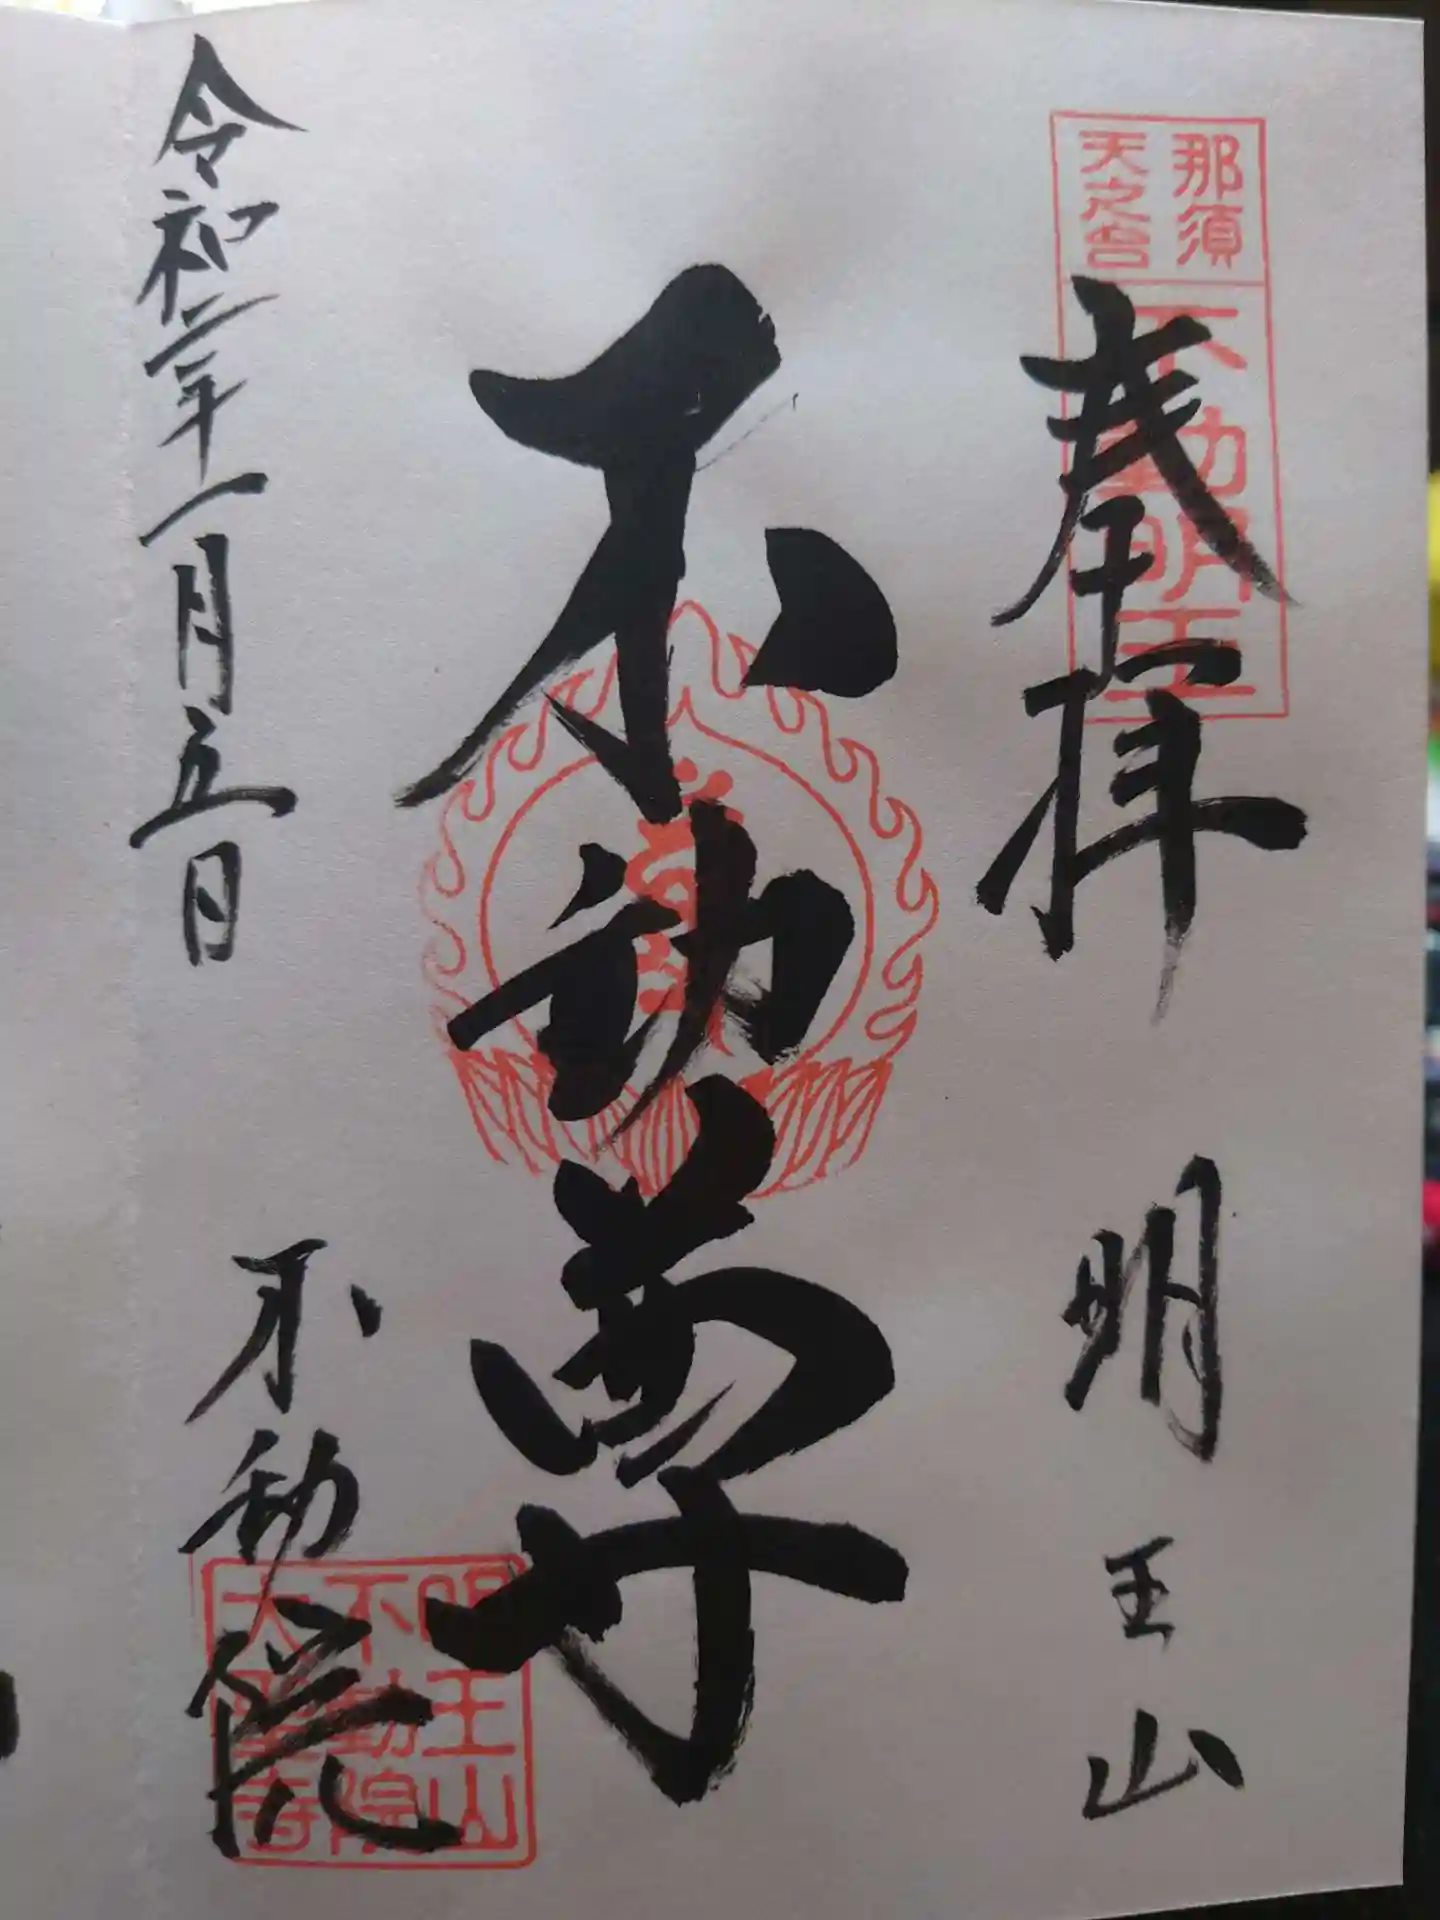 那須
天之
不動明王
奉拝 明王山
不動尊
令和三年一月五日 不動院
明王山
不動院
大聖寺